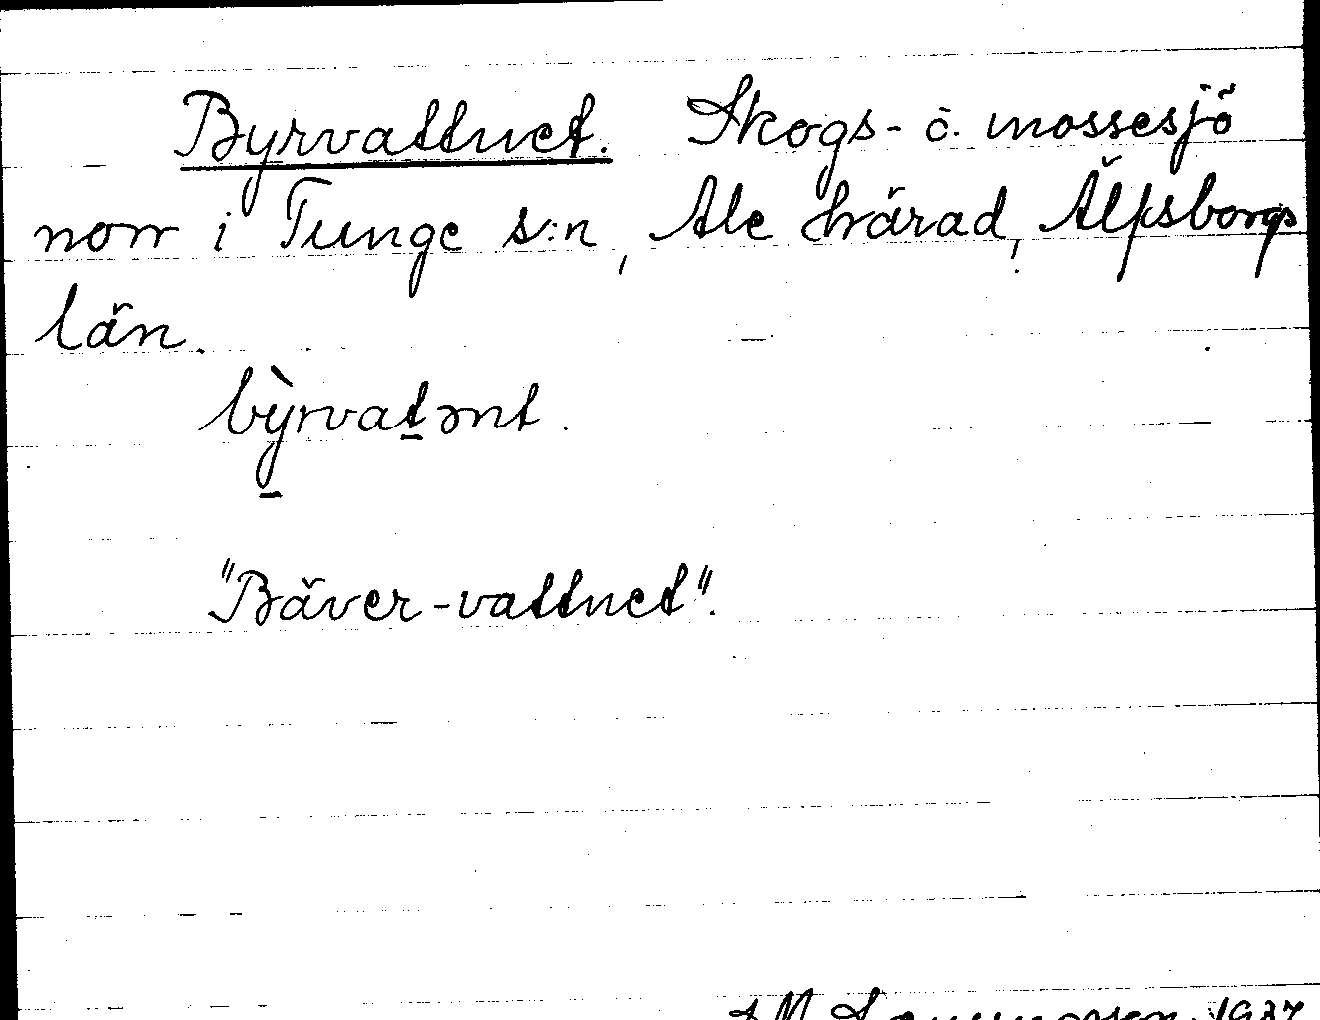 Byrvattnet. Skogs- o. mossesjö
norr i Tunge s:n, Ale härad, Älfsborgs
län.
bỳ̱rvaṯənt.
"Bäver-vattnet".